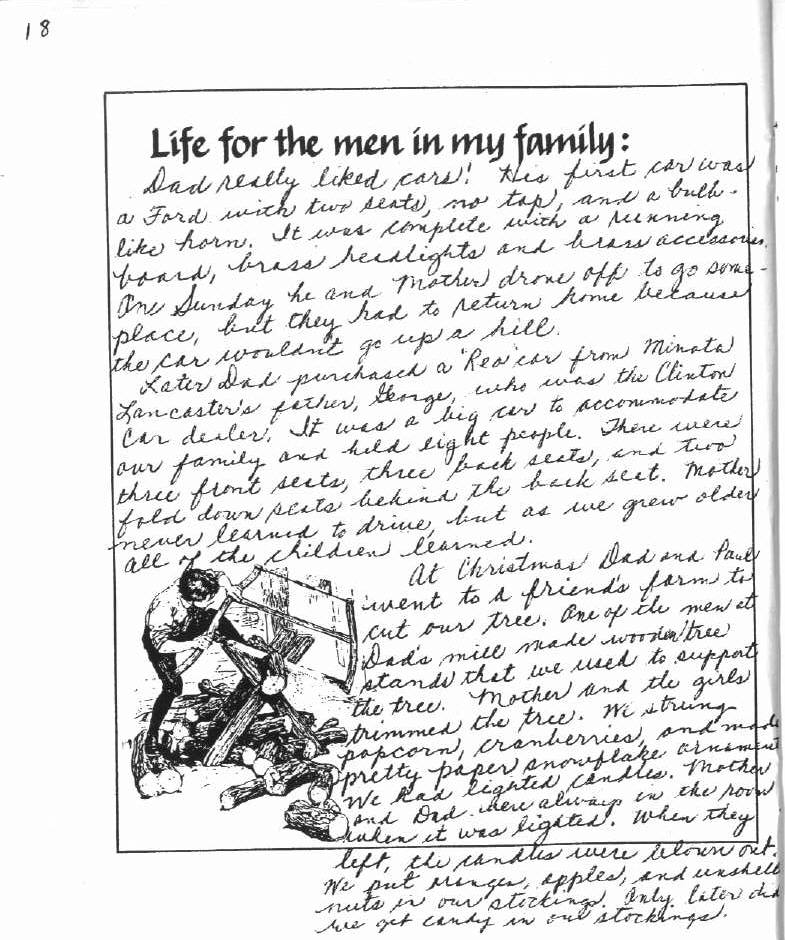 18
Life for the men in my family:
Dad really liked cars! His first car was
a Ford with two seats, no top, and a bulb-
like horn. It was complete with a running
board, brass headlights and brass accessories.
One Sunday he and Mother drove off to go some-
place, but they had to return home because
the car wouldn't go up a hill.
Later Dad purchased a "Reo" car from Minata
Lancaster's father, George, who was the Clinton
Car dealer. It was a big car to accommodate
our family and held eight people. There were
three front seats, three back seats, and two
fold down seats behind the back seat. Mother
never learned to drive, but as we grew older
all of the children learned.
At Christmas Dad and Paul
went to a friend's farm to
cut our tree. One of the men at
Dad's mill made wooden tree
stands that we used to support
the tree. Mother and the girls
trimmed the tree. We strung
popcorn, cranberries, and made
pretty paper snowflake ornaments
We had lighted candles. Mother
and Dad were always in the room
when it was lighted. When they
left, the candles were blown out.
We put oranges, apples, and unshell
nuts in our stockings. Only later did
we get candy in our stockings.